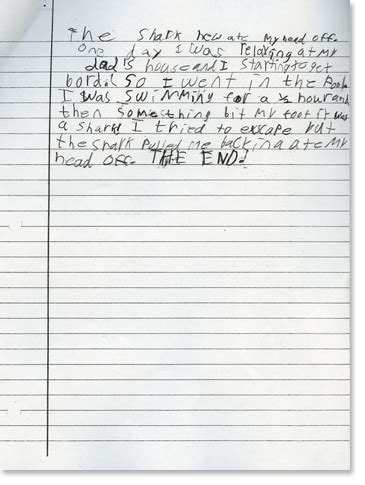 The Shark how ate my head off.
One day I was relaxing at my
dad's house and I starting to get
bord. So I went in the Pool.
I was swimming for a ½ hour and
then something bit my foot it was
a shark! I tried to excape but
the shark pulled me back in a ate my
head off. THE END!